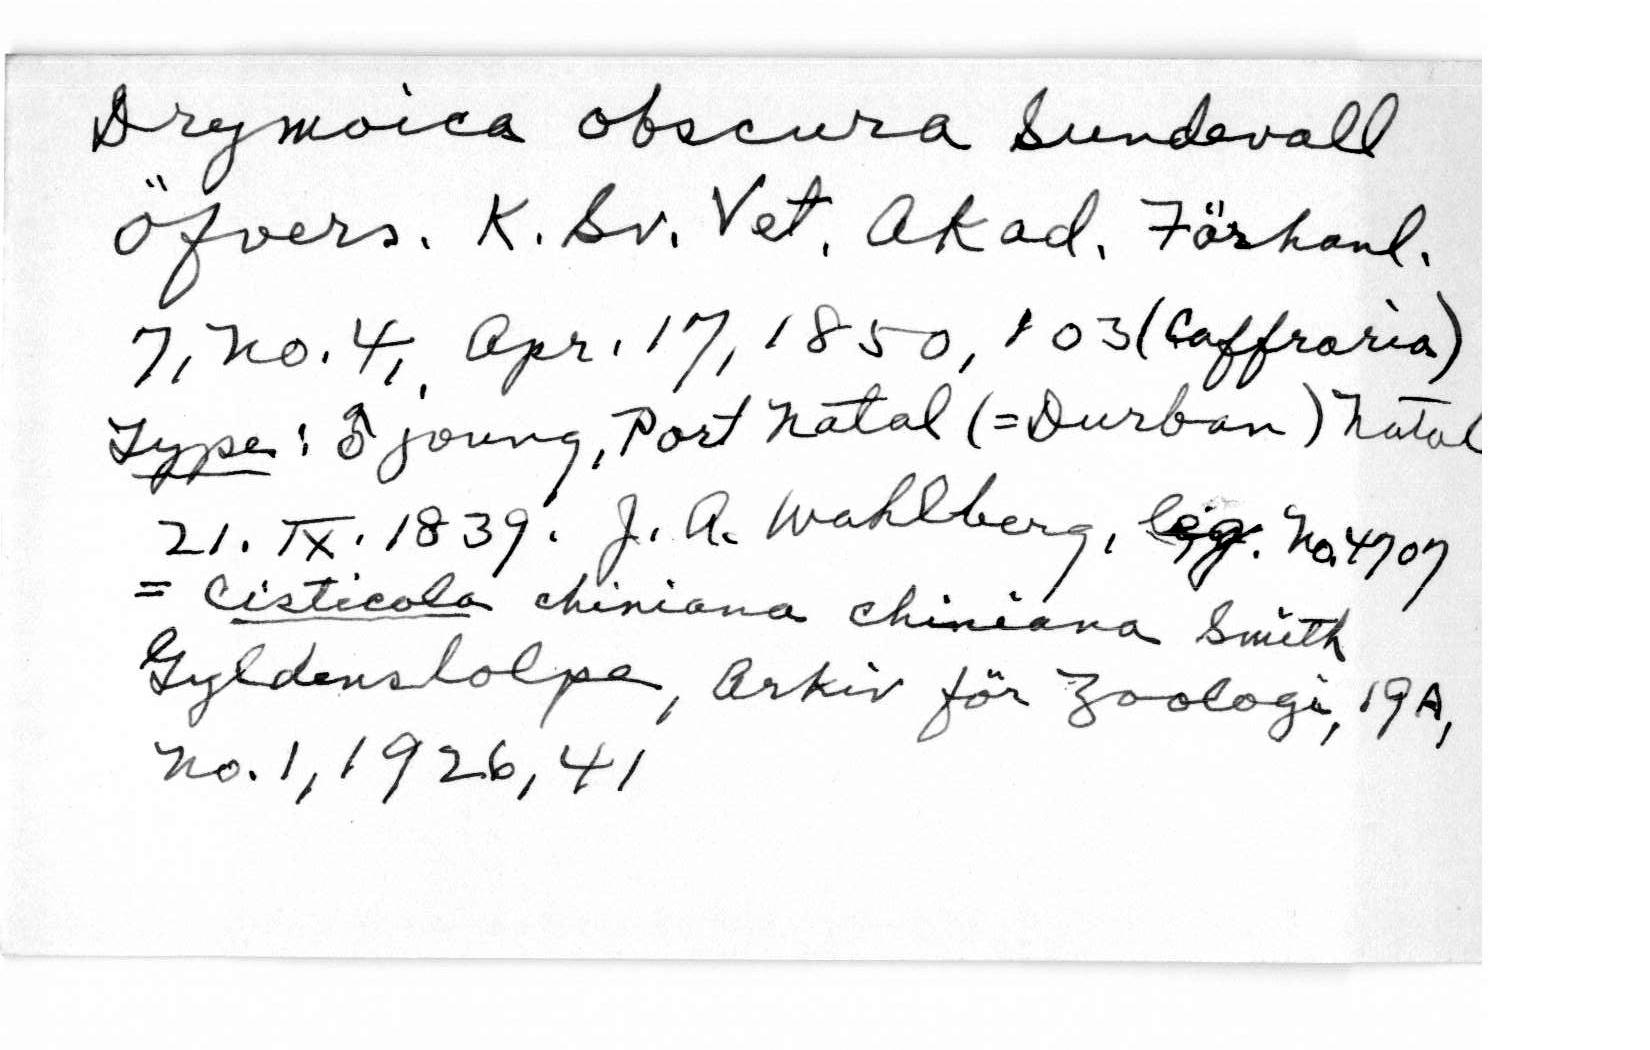 Drymoica obscura Sundevall
Öfvers. K. Sv. Vet. Akad. Förhanl.
7, No. 4, Apr. 17, 1850, 103 (Caffraria)
Type: ♂ joung, Port Natal (=Durban) Natal
21. IX. 1839. J. A. Wahlberg, leg. No. 4707
= Cisticola chiniana chiniana Smith
Gyldenstolpe, Arkiv för Zoologi, 19A,
No. 1, 1926, 41